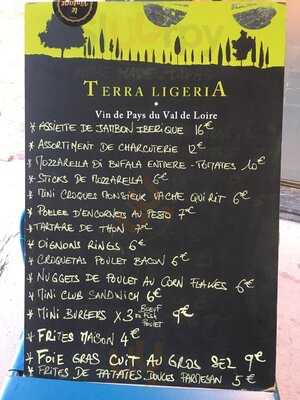 TERRA LIGERIA
Vin de Pays du Val de Loire
* ASSIETTE DE JAMBON IBERIQUE 16€
* ASSORTIMENT DE CHARCUTERIE 12€
* MOZZARELLA DI BUFALA ENTIERE - TOMATES 10€
* STICKS DE MOZZARELLA 6€
* MINI CROQUES MONSIEUR VACHE QUI RIT 6€
* POELEE D'ENCORNETS AU PESTO 7€
* TARTARE DE THON 7€
* OIGNONS RINGS 6€
* CROQUETAS POULET BACON 6€
* NUGGETS DE POULET AU CORN FLAKES 6€
* MINI CLUB SANDWICH 6€
* MINI BURGERS X3 BOEUF POULET 9€
* FRITES MAISON 4€
* FOIE GRAS CUIT AU GROS SEL 9€
* FRITES DE PATATES DOUCES PARMESAN 5€